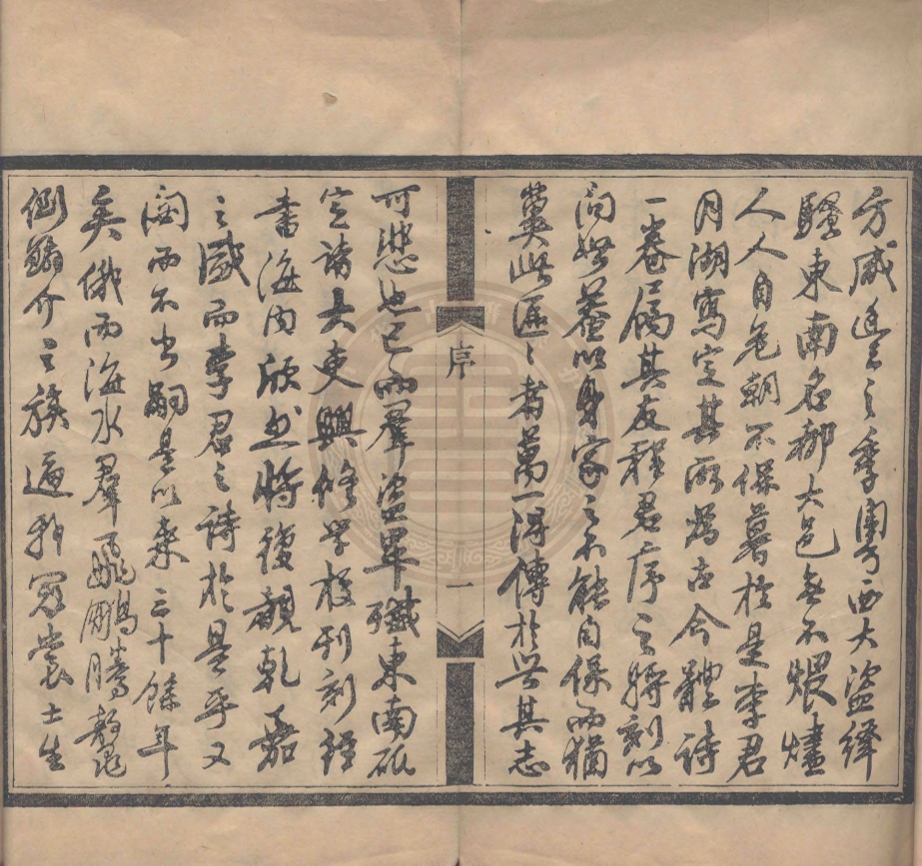 方咸豐之季粵西大盜繹
騷東南名都大邑無不煨燼
人人自危朝不保暮於是李君
月湖寫定其所為古今體詩
一卷屬其友程君序之將刻以
問世蓋以身家之不能自保而猶
冀此區〻者萬一得傳於世其志
序
一
可悲也已而羣盜畢殲東南砥
定諸大吏興修學校刊刻經
書海內欣然將復覩乾嘉
之盛而李君之詩於是乎又
閟而不出嗣是以來三十餘年
矣俄而海水羣飛鵬騰
倒鱗介之族逼我冠裳士生